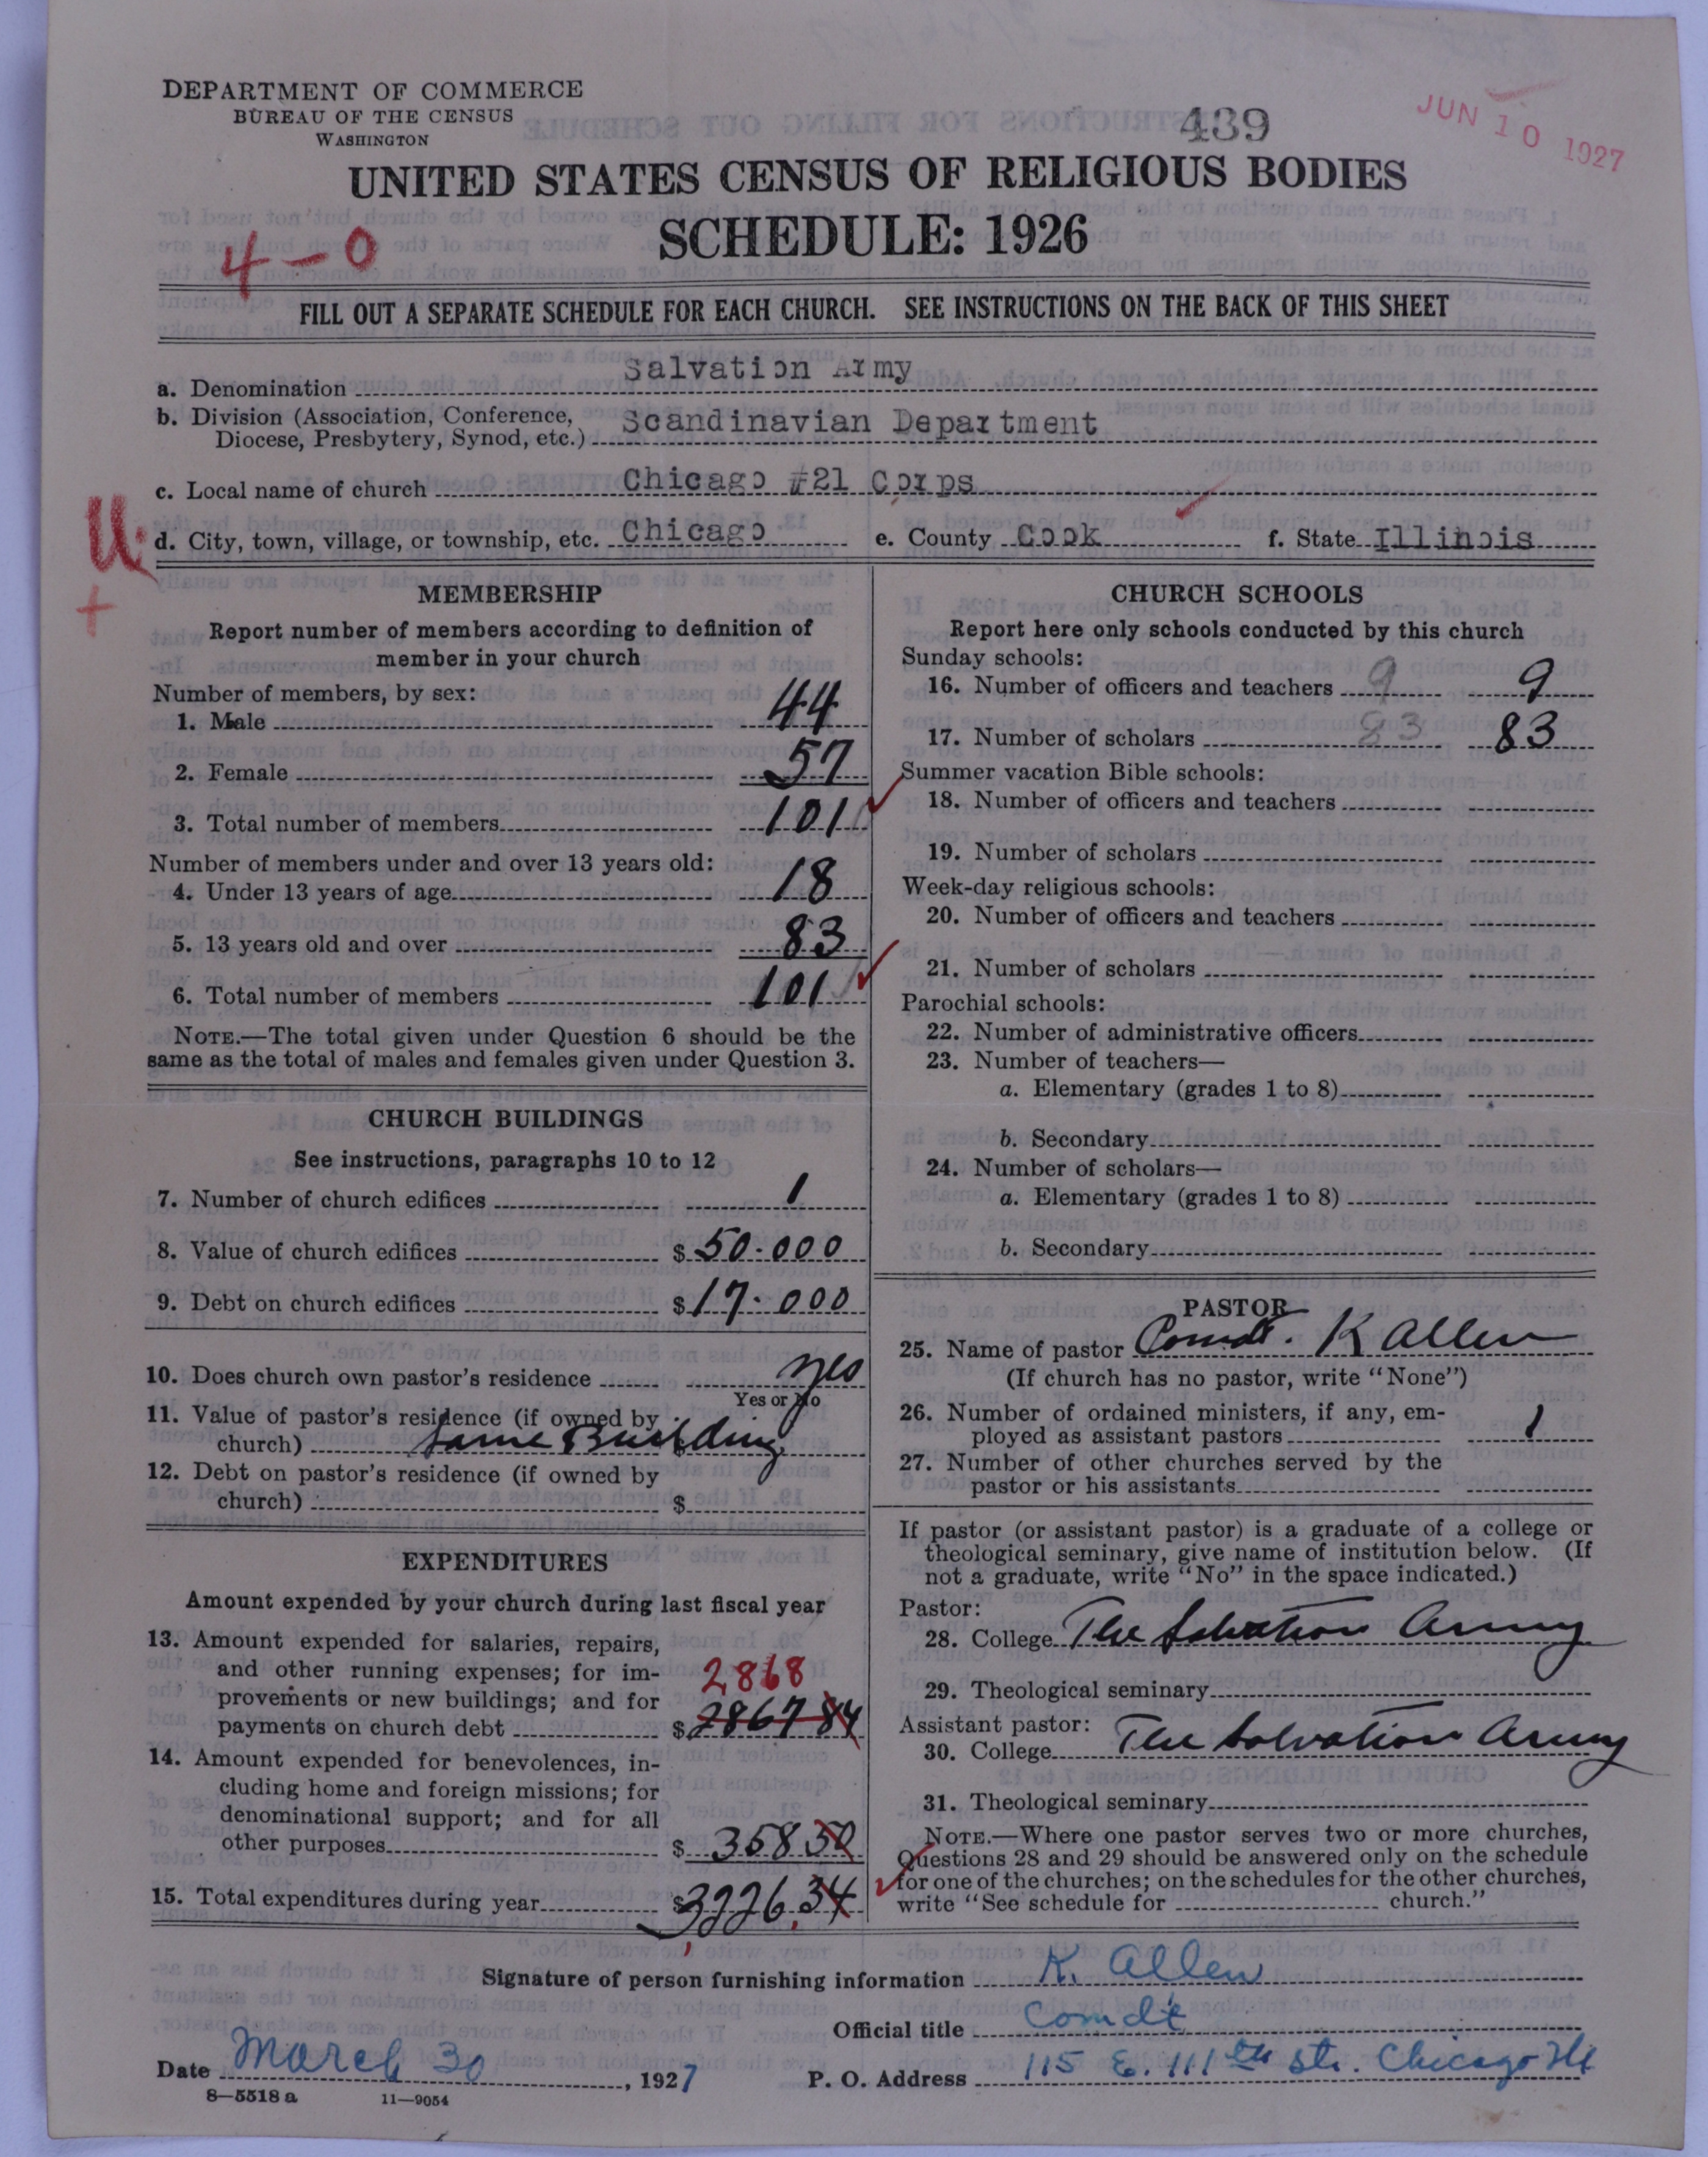 DEPARTMENT OF COMMERCE
BUREAU OF THE CENSUS
WASHINGTON
439
JUN 10 1927
UNITED STATES CENSUS OF RELIGIOUS BODIES
SCHEDULE: 1926
4-0
FILL OUT A SEPARATE SCHEDULE FOR EACH CHURCH. SEE INSTRUCTIONS ON THE BACK OF THIS SHEET
a. Denomination Salvation Army
b. Division (Association, Conference, Diocese, Presbytery, Synod, etc.) Scandinavian Department
c. Local name of church Chicago #21 Corps
U.
d. City, town, village, or township, etc. Chicago e. County Cook f. State Illinois
+
MEMBERSHIP
Report number of members according to definition of
member in your church
Number of members, by sex:
1. Male 44
2. Female 57
3. Total number of members 101
Number of members under and over 13 years old:
4. Under 13 years of age 18
5. 13 years old and over 83
6. Total number of members 101
NOTE.—The total given under Question 6 should be the
same as the total of males and females given under Question 3.
CHURCH BUILDINGS
See instructions, paragraphs 10 to 12
7. Number of church edifices 1
8. Value of church edifices $ 50.000
9. Debt on church edifices $ 17.000
10. Does church own pastor's residence yes
Yes or No
11. Value of pastor's residence (if owned by
church) $ Same Building
12. Debt on pastor's residence (if owned by
church) $
EXPENDITURES
Amount expended by your church during last fiscal year
13. Amount expended for salaries, repairs,
and other running expenses; for im-
provements or new buildings; and for 2868
payments on church debt $ 2867 84
14. Amount expended for benevolences, in-
cluding home and foreign missions; for
denominational support; and for all
other purposes $ 358 50
15. Total expenditures during year $ 3226.34
CHURCH SCHOOLS
Report here only schools conducted by this church
Sunday schools:
16. Number of officers and teachers 9 9
17. Number of scholars 83 83
Summer vacation Bible schools:
18. Number of officers and teachers
19. Number of scholars
Week-day religious schools:
20. Number of officers and teachers
21. Number of scholars
Parochial schools:
22. Number of administrative officers
23. Number of teachers—
a. Elementary (grades 1 to 8)
b. Secondary
24. Number of scholars—
a. Elementary (grades 1 to 8)
b. Secondary
PASTOR
25. Name of pastor Comdt. K Allen
(If church has no pastor, write "None")
26. Number of ordained ministers, if any, em-
ployed as assistant pastors 1
27. Number of other churches served by the
pastor or his assistants
If pastor (or assistant pastor) is a graduate of a college or
theological seminary, give name of institution below. (If
not a graduate, write "No" in the space indicated.)
Pastor:
28. College The Salvation Army
29. Theological seminary
Assistant pastor:
30. College The Salvation Army
31. Theological seminary
NOTE.—Where one pastor serves two or more churches,
Questions 28 and 29 should be answered only on the schedule
for one of the churches; on the schedules for the other churches,
write "See schedule for church."
Signature of person furnishing information K. Allen
Official title Comdt
Date March 30, 1927 P. O. Address 115 E. 111th Str. Chicago Ill
8—5518 a 11—9054